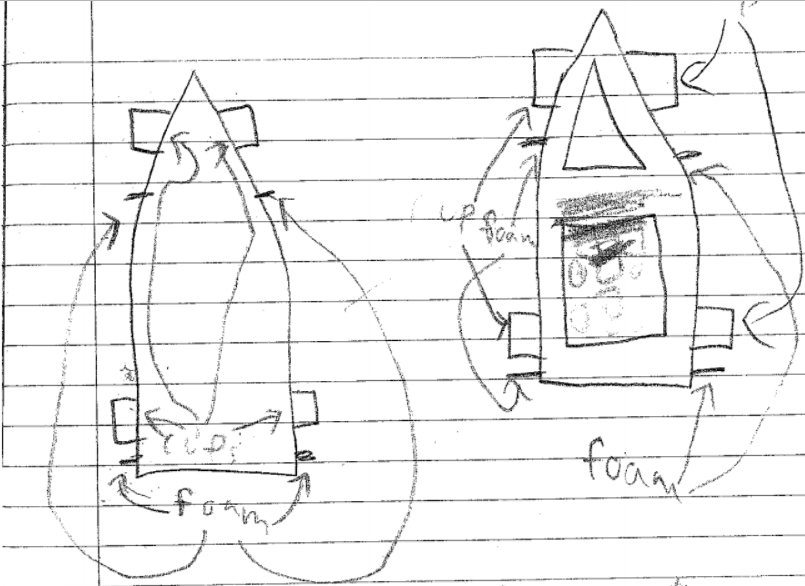 cups
foam
cup
foam
foam